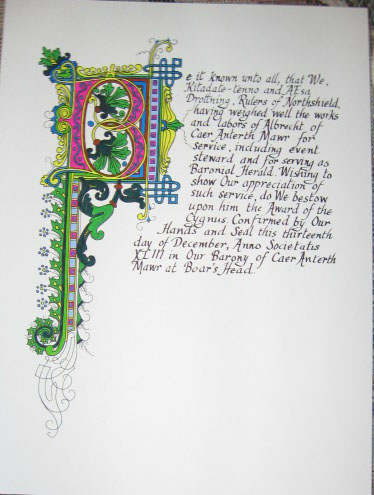 Be it known unto all, that We,
Kitadate-tenno and AEsa
Drottning, Rulers of Northshield,
having weighed well the works
and labors of Albrecht of
Caer Anterth Mawr for
service, including event
steward and for serving as
Baronial Herald. Wishing to
show Our appreciation of
such service, do We bestow
upon him the Award of the
Cygnus. Confirmed by Our
Hands and Seal this thirteenth
day of December, Anno Societatis
XLIII in Our Barony of Caer Anterth
Mawr at Boar's Head.